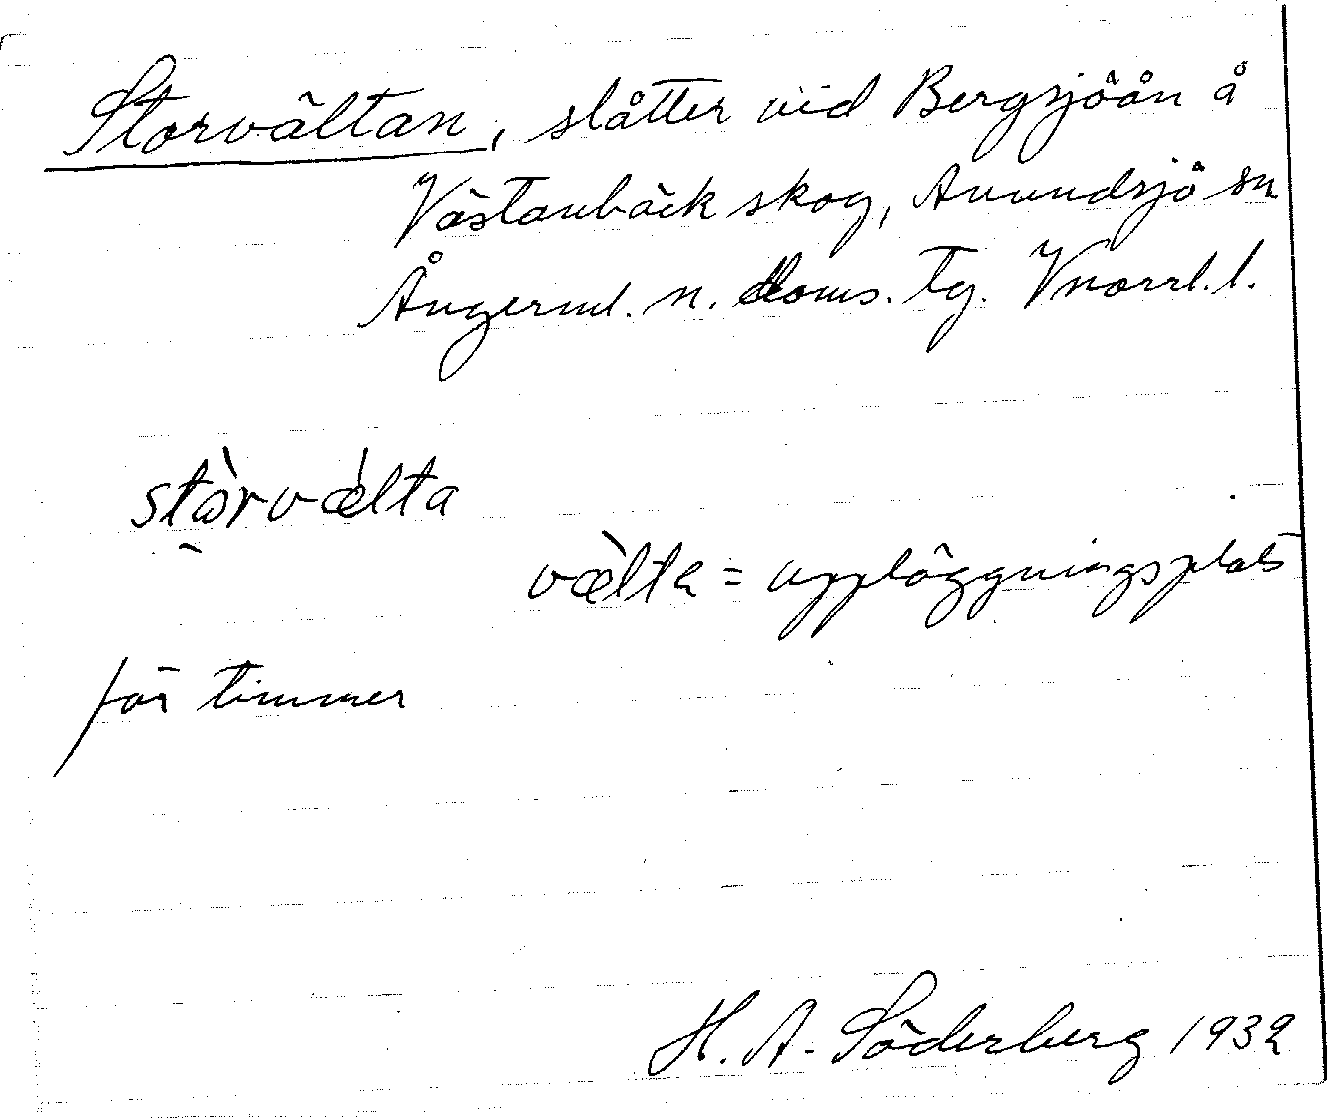 Storvältan, slåtter vid Bergsjöån å
Västanbäck skog, Anundsjö sn
Ångerml. n. doms. tg. Vnorrl. l.
stòrvǽlta
væ̀lta = uppläggningsplats
för timmer
H. A. Söderberg 1932